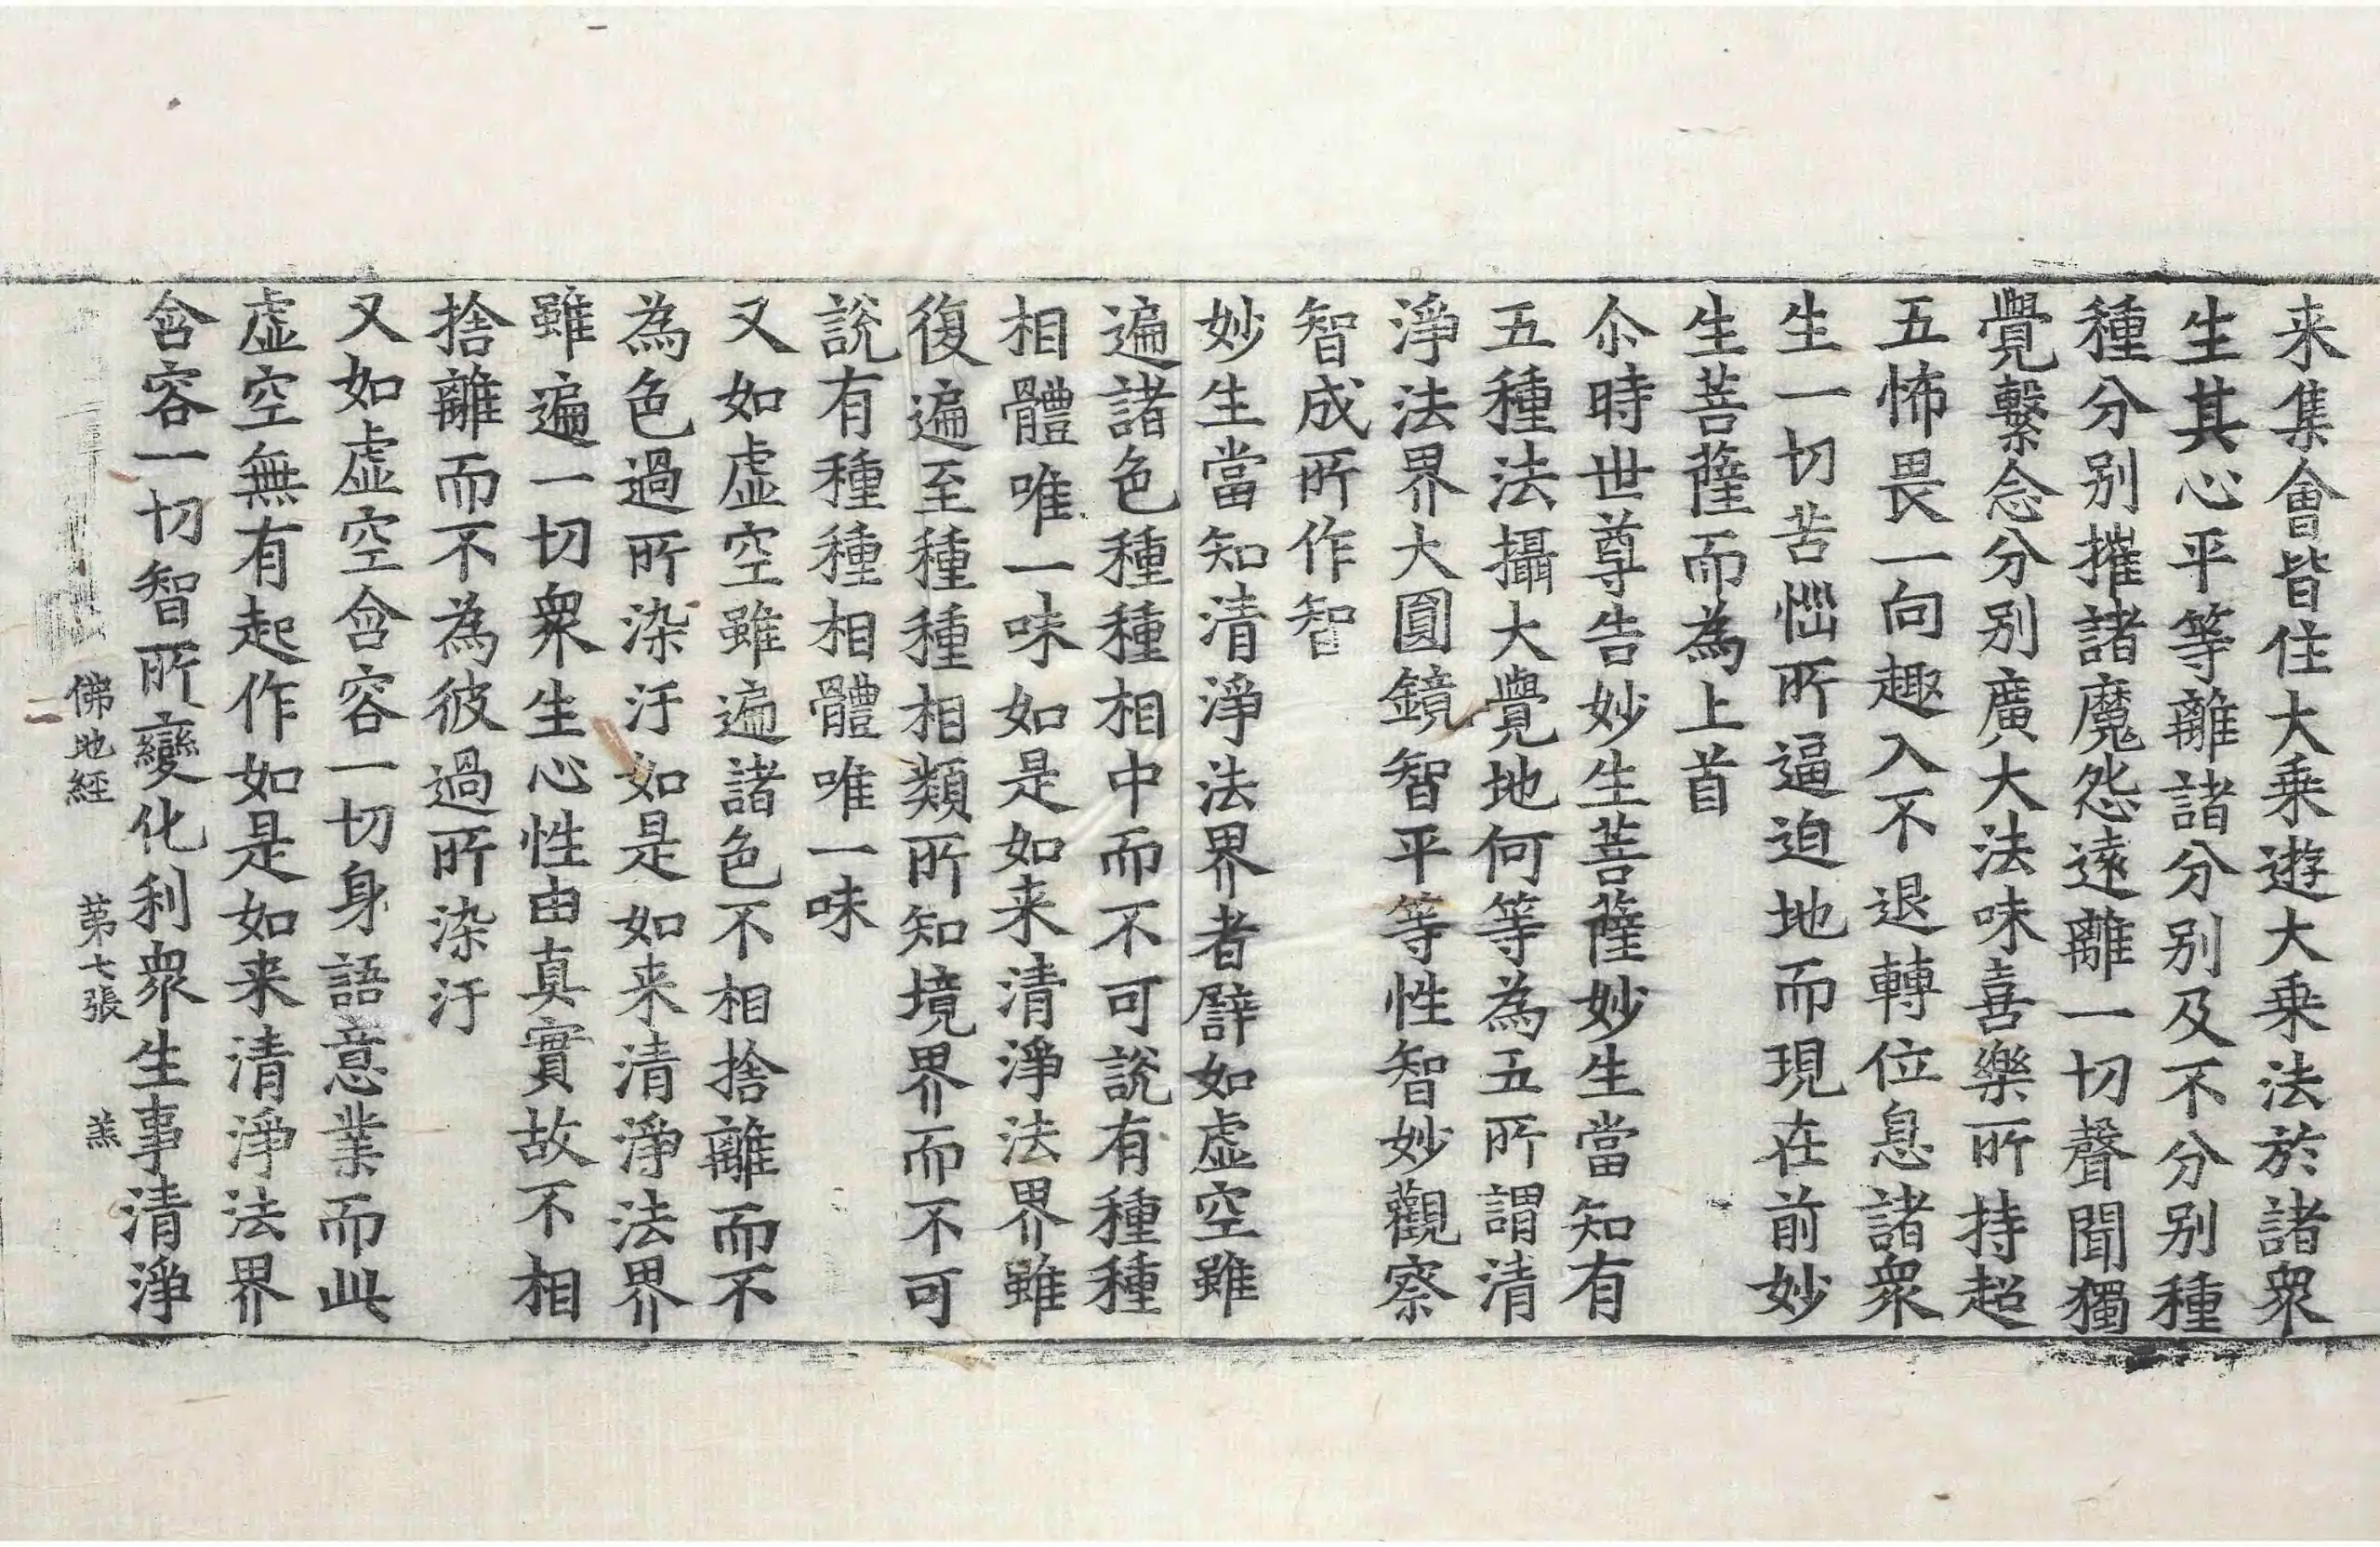 来集會皆住大乗遊大乗法於諸衆
生其心平等離諸分别及不分别種
種分别摧諸魔怨遠離一切聲聞獨
覺繫念分别廣大法味喜樂所持超
五怖畏一向趣入不退轉位息諸衆
生一切苦惱所逼迫地而現在前妙
生菩薩而為上首
尒時世尊告妙生菩薩妙生當知有
五種法攝大覺地何等為五所謂清
淨法界大圓鏡智平等性智妙觀察
智成所作智
妙生當知清淨法界者譬如虛空雖
遍諸色種種相中而不可說有種種
相體唯一味如是如来清淨法界雖
復遍至種種相類所知境界而不可
說有種種相體唯一味
又如虛空雖遍諸色不相捨離而不
為色過所染汙如是如来清淨法界
雖遍一切衆生心性由真實故不相
捨離而不為彼過所染汙
又如虛空含容一切身語意業而此
虛空無有起作如是如来清淨法界
含容一切智所變化利衆生事清淨
佛地經 苐七張 羔